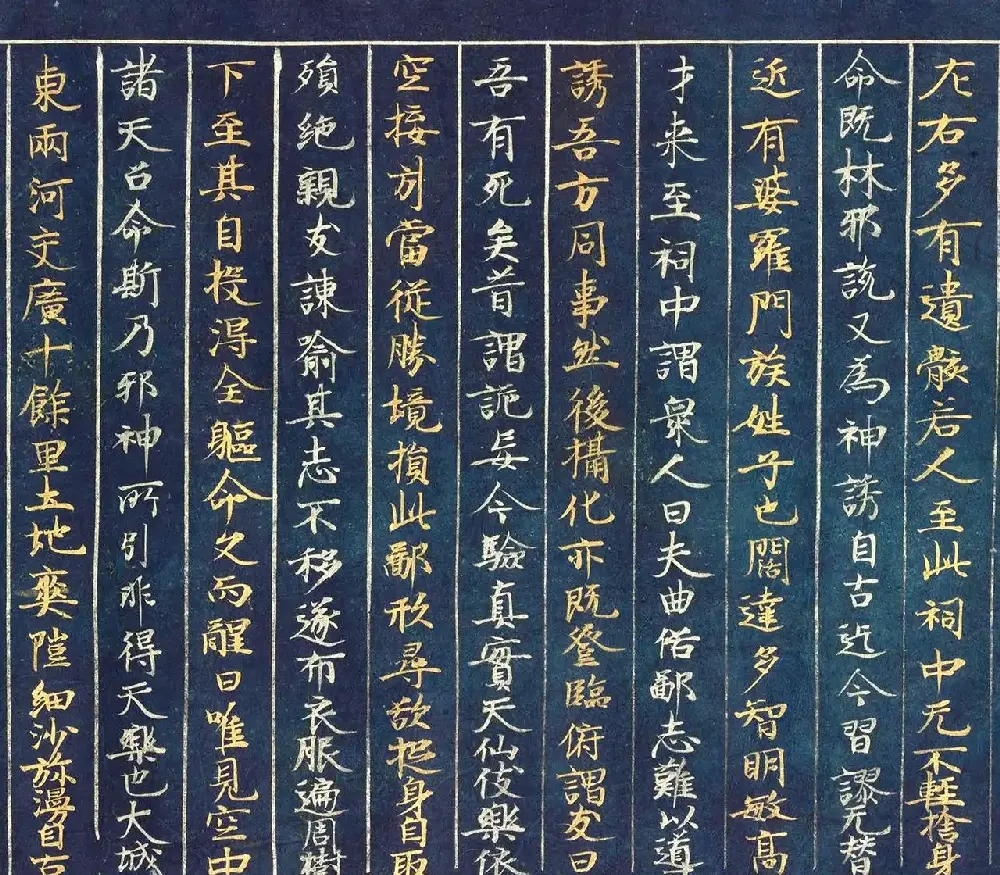 左右多有遺骸若人至此祠中无不輕捨身
命既林邪說又為神誘自古迄今習謬无替
近有婆羅門族姓子也闊達多智明敏高
才来至祠中謂衆人曰夫曲俗鄙志難以導
誘吾方同事然後攝化亦既登臨俯謂友曰
吾有死矣昔謂詭妄今驗真實天仙伎樂依
空接引當從勝境損此鄙形尋欲投身自取
殞絶親友諫喻其志不移遂布衣服遍周樹
下至其自投得全軀命久而醒曰唯見空中
諸天召命斯乃邪神所引非得天樂也大城
東兩河交廣十餘里土地爽塏細沙弥漫自古